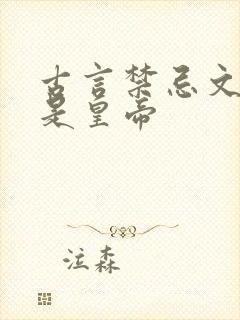 古言禁忌文
是皇帝
泣森